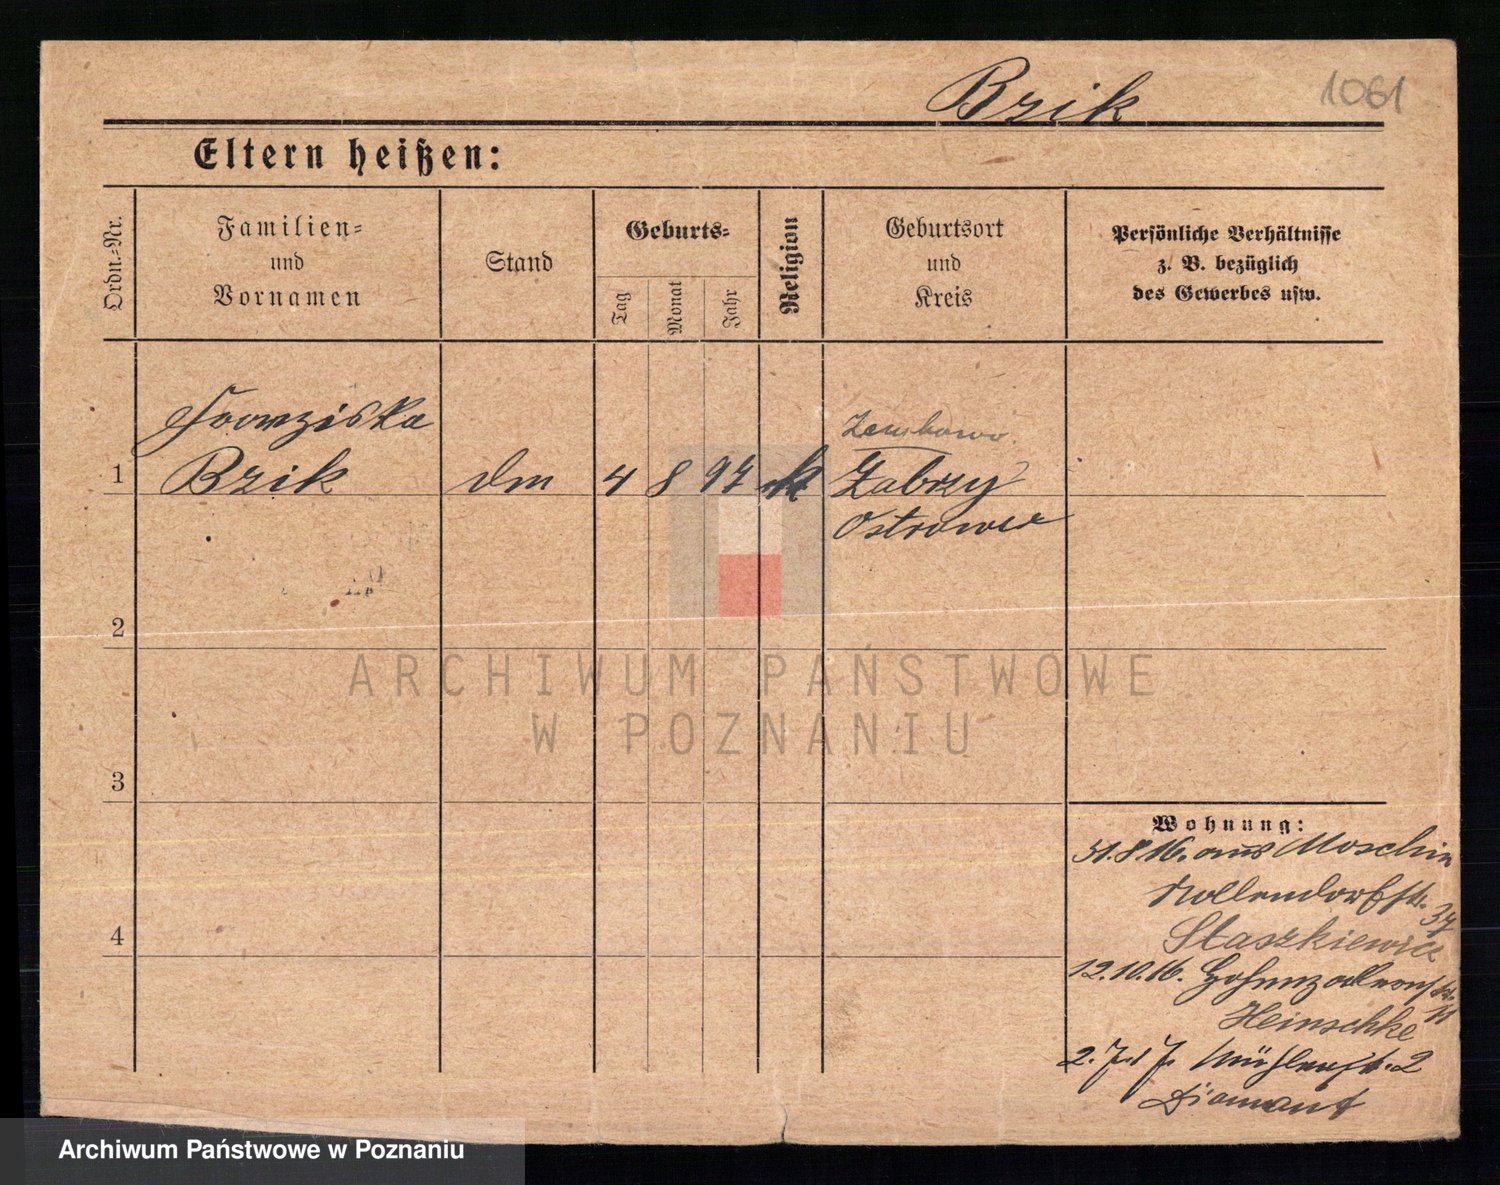 Brzik
1061
Eltern heißen:
Ordn.-Nr.
Familien-
und
Vornamen
Stand
Geburts-
Tag
Monat
Jahr
Religion
Geburtsort
und
Kreis
Persönliche Verhältnisse
z. B. bezüglich
des Gewerbes usw.
1
Franziska
Brzik
4 8 97 k
Ostrowo
2
3
4
ARCHIWUM PAŃSTWOWE
W POZNANIU
Wohnung:
31.8.16. aus Moschin
Nollendorfstr. 37
Staszkiewicz
12.10.16. Hohenzollernstr.
Heinschke
Mühlenstr. 2
Diamant
Archiwum Państwowe w Poznaniu